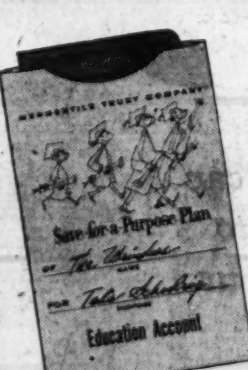 MERCANTILE TRUST COMPANY
Save-for-a-Purpose Plan
OF The
NAME
FOR
PURPOSE
Education Account